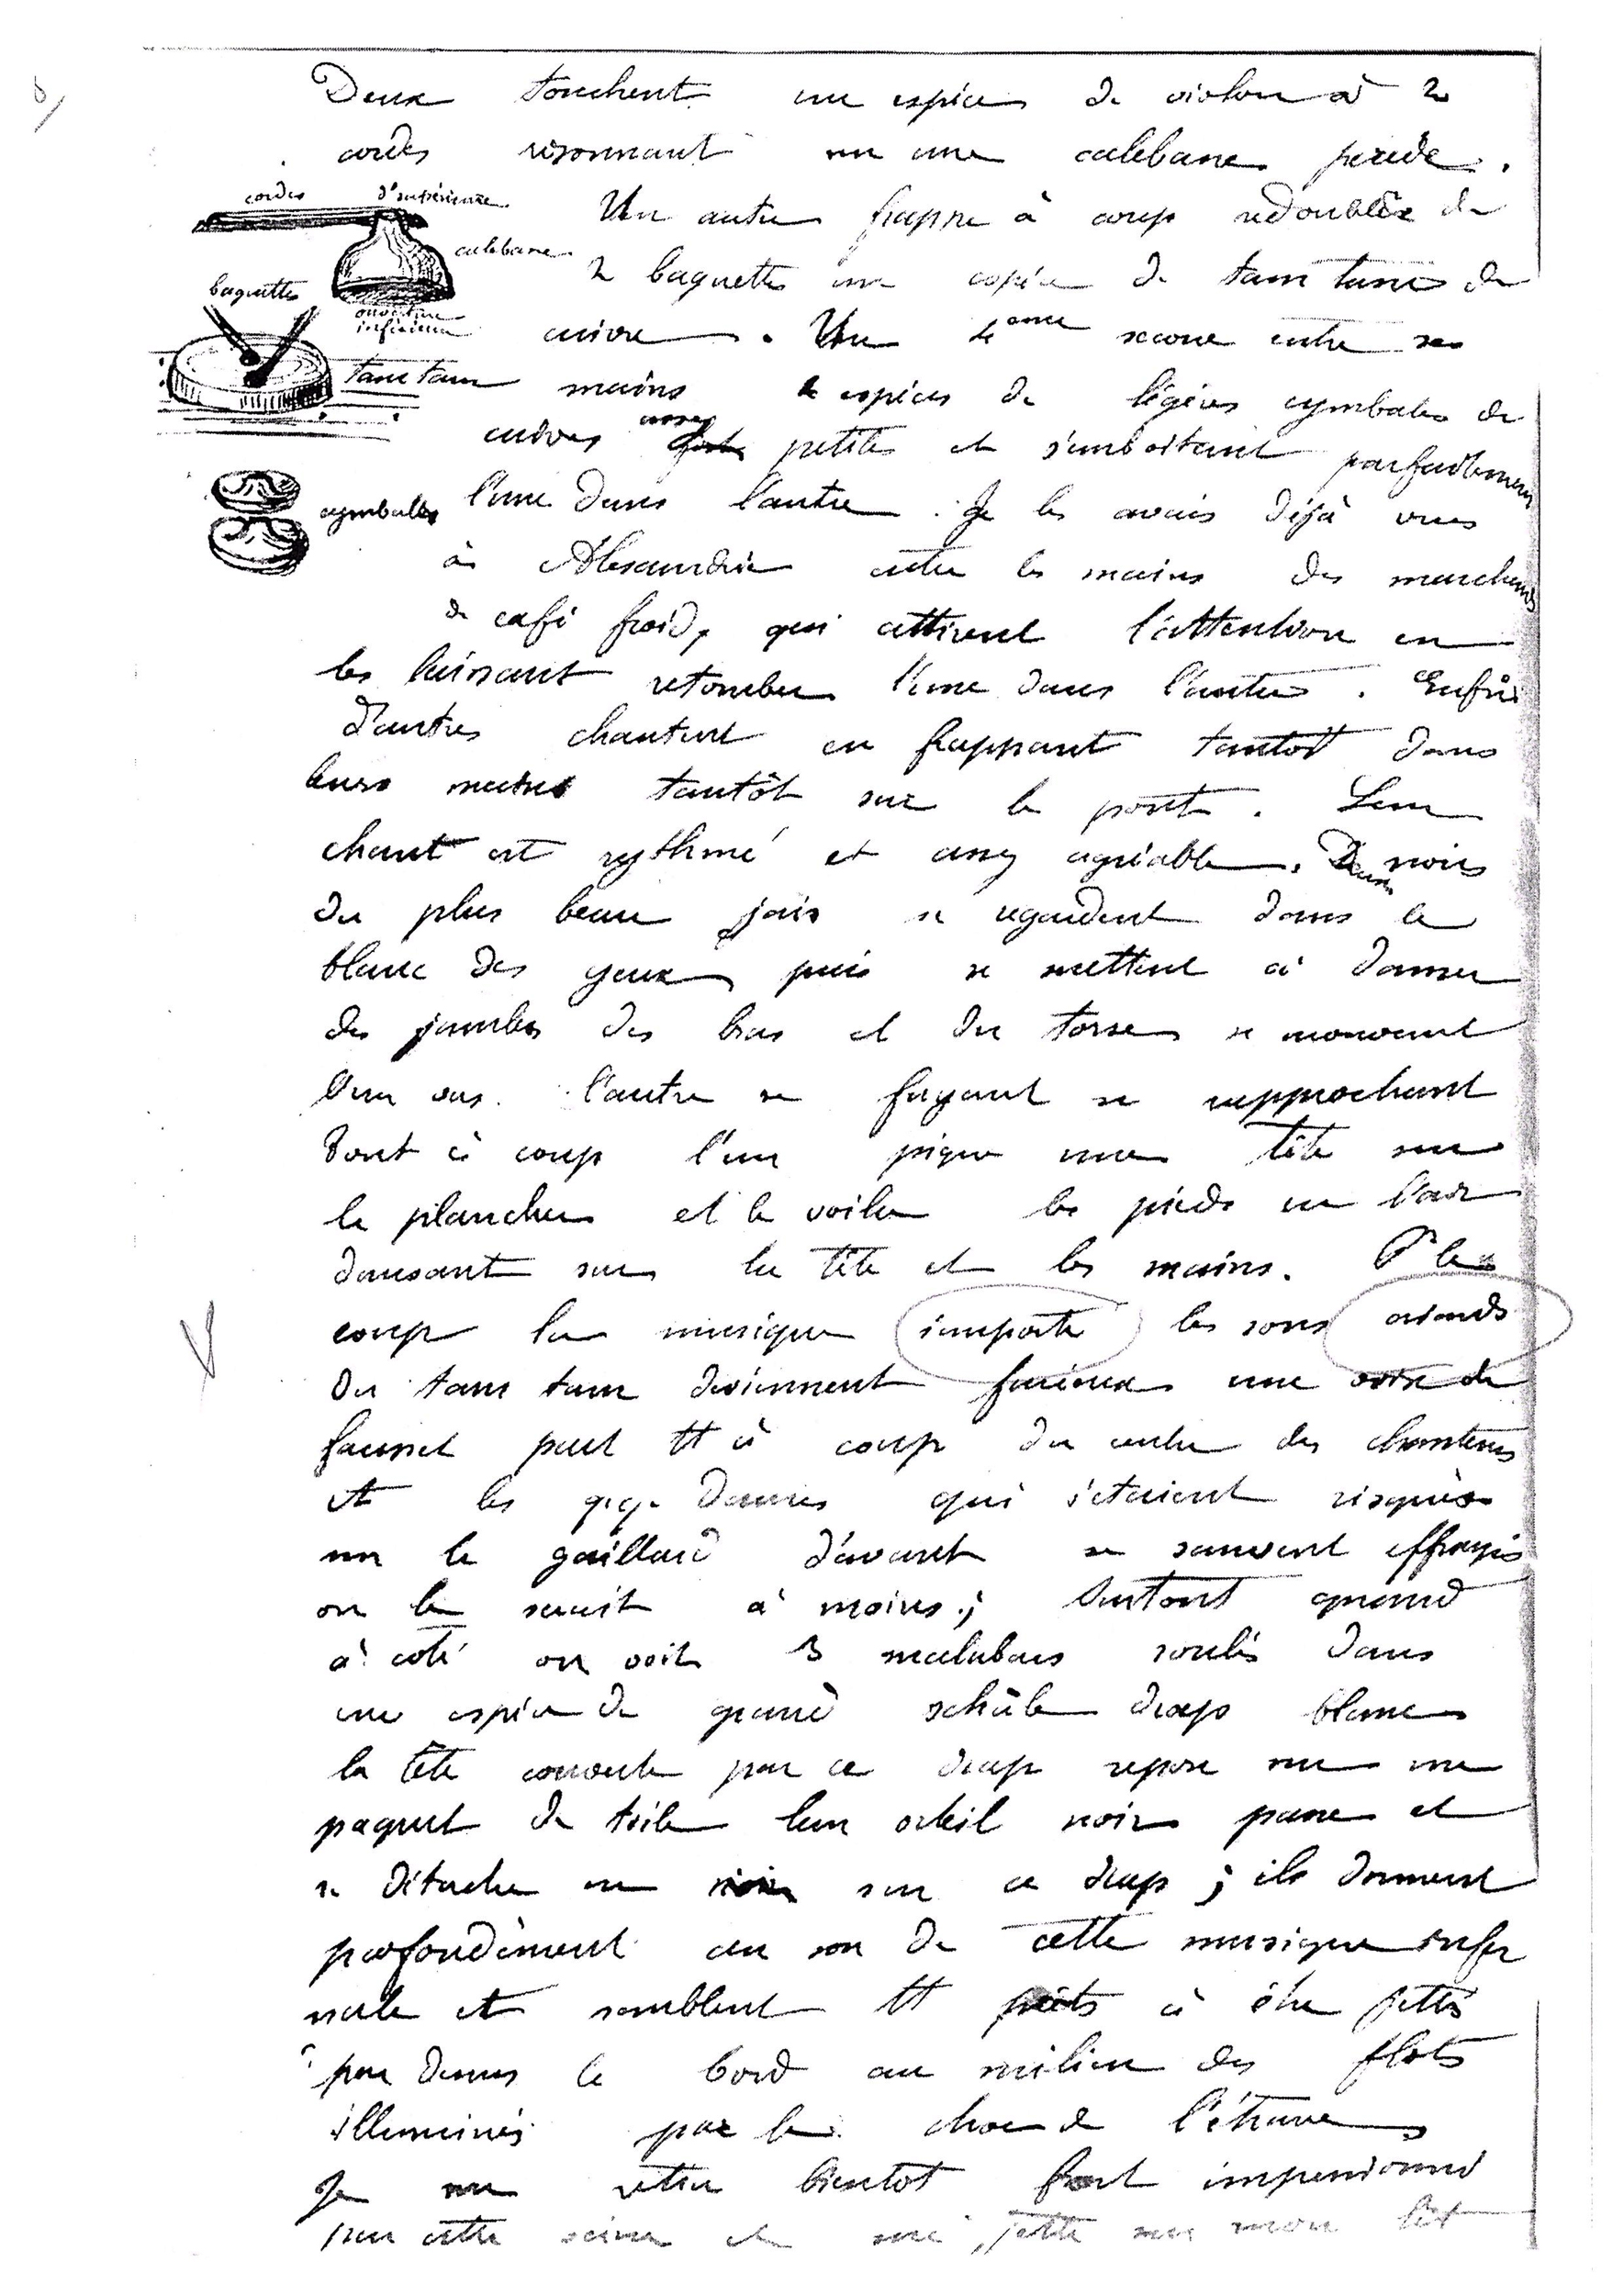 Deux touchent une espèce de violon à 2
cordes résonnant sur une calebasse percée.
cordes d'instrument
calebasse
ouverture
inférieure
baguettes
tam tam
cymbales
Un autre frappe à coups redoublés de
2 baguettes une espèce de tam tam de
cuivre. Un secoue entre ses
mains 2 espèces de légères cymbales de
cuivres assez petites et s'emboitant parfaitement
l'une dans l'autre. Je les avais déjà vues
à Alexandrie entre les mains des marchands
de café froid, qui attirent l'attention en
les laissant retomber l'une dans l'autre. Enfin
d'autres chantent en frappant tantôt dans
leurs mains tantôt sur le pont. Leur
chant est rythmé et assez agréable. Deux noirs
du plus beau jais se regardent dans le
blanc des yeux, puis se mettent à danser
des jambes des bras et du torse se mouvant
l'un vers l'autre se fuyant se rapprochant
Tout à coup l'un pique une tête sur
le plancher et le voila les pieds en l'air
dansant sur la tête et les mains.
coup la musique les sons
du tam tam deviennent furieux une voix de
fausset part tt à coup du centre des chanteurs
et les qq. dames qui s'etaient risquées
sur le gaillard d'avant se sauvent effrayées
on le serait à moins; surtout quand
à coté on voit 3 malabars roulés dans
une espèce de grand schâle drap blanc
la tête couverte par ce drap repose sur un
paquet de toile leur orteil noir passe et
se détache en noir sur ce drap; ils dorment
profondément au son de cette musique infer
nale et semblent tt prêts à être jettés
par dessus le bord au milieu des flots
illuminés par le choc de l'étrave
Je me retire bientot fort impressionné
par cette scène et me jette sur mon lit